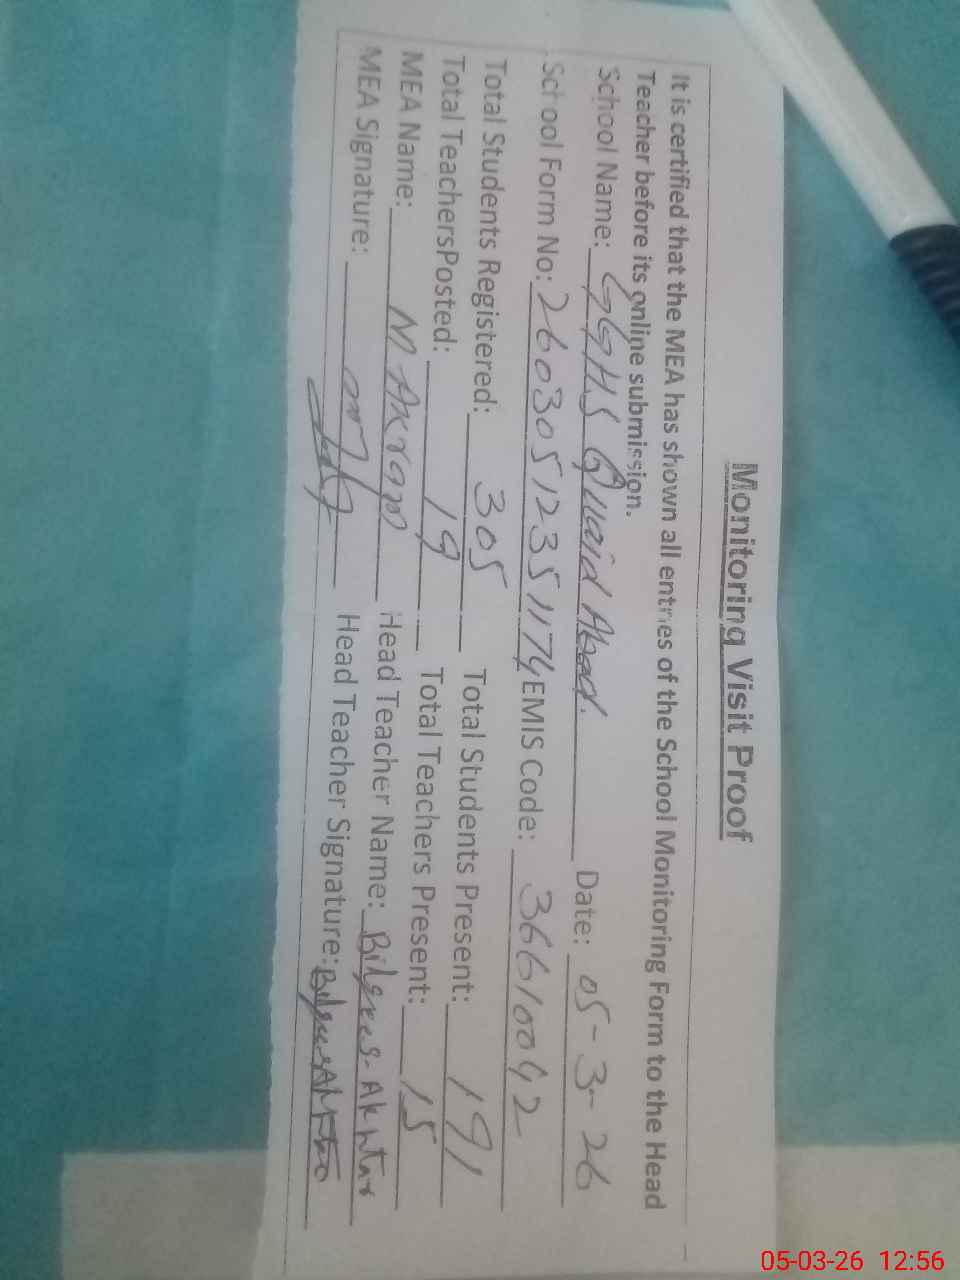 Monitoring Visit Proof
It is certified that the MEA has shown all entries of the School Monitoring Form to the Head
Teacher before its online submission.
School Name: GGHS Quaid Abad. Date: 05-3-26
School Form No: 26030512351174 EMIS Code: 36610042
Total Students Registered: 305 Total Students Present: 191
Total TeachersPosted: 19 Total Teachers Present: 15
MEA Name: M Akram Head Teacher Name: Bilqees Akhtar
MEA Signature: Head Teacher Signature:
05-03-26 12:56